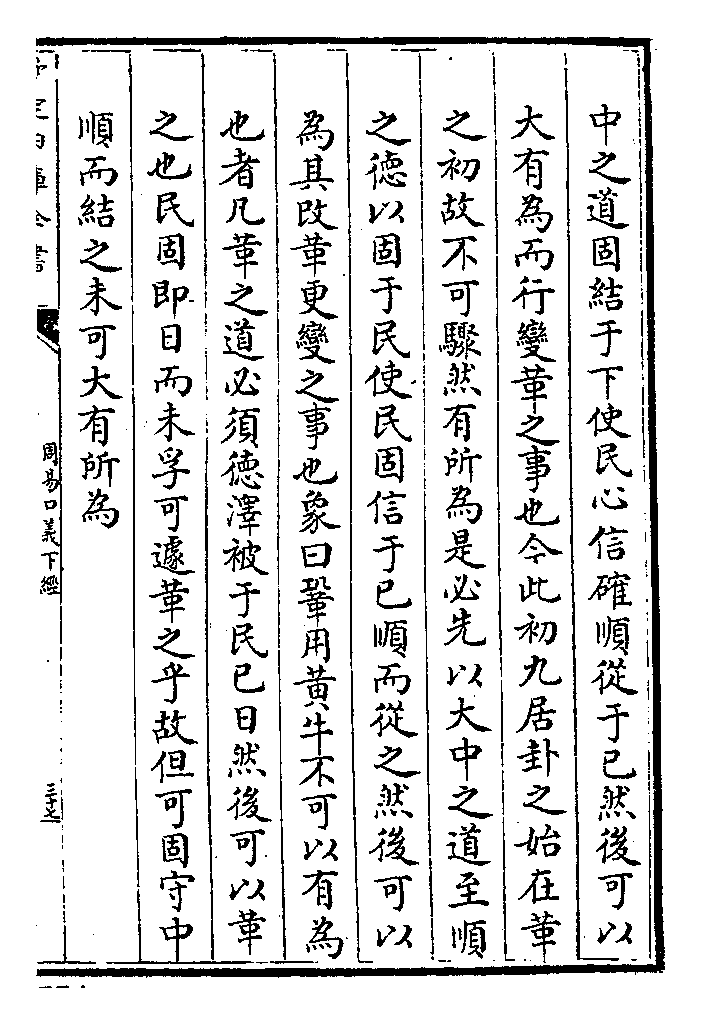 中之道固結于下使民心信確順從于已然後可以
大有為而行變革之事也今此初九居卦之始在革
之初故不可驟然有所為是必先以大中之道至順
之德以固于民使民固信于已順而從之然後可以
為其改革更變之事也象曰鞏用黃牛不可以有為
也者凡革之道必須德澤被于民已日然後可以革
之也民固即日而未孚可遽革之乎故但可固守中
順而結之未可大有所為
周易口義下經
三十七